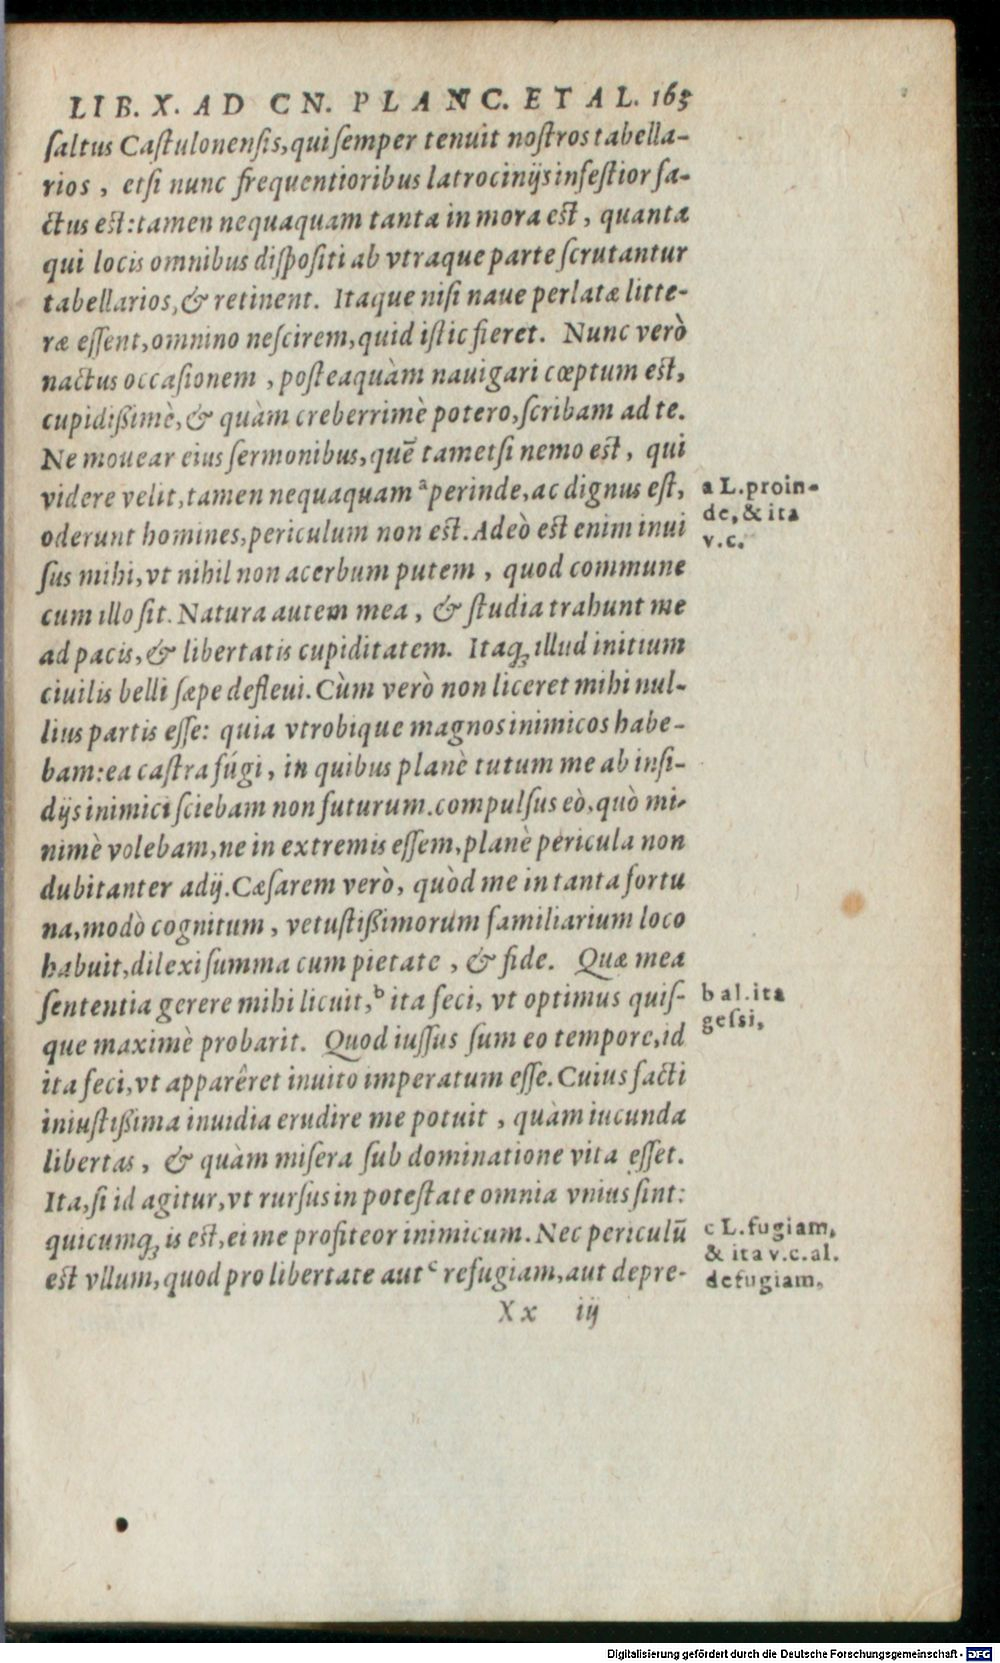 LIB. X. AD CN. PLANC. ET AL. 165
ſaltus Caſtulonenſis, qui ſemper tenuit noſtros tabella-
rios, etſi nunc frequentioribus latrocinijs infeſtior fa-
ctus eſt: tamen nequaquam tanta in mora eſt, quanta
qui locis omnibus diſpoſiti ab vtraque parte ſcrutantur
tabellarios, & retinent. Itaque niſi naue perlatæ litte-
ræ eſſent, omnino neſcirem, quid iſtic fieret. Nunc verò
nactus occaſionem, poſteaquàm nauigari cœptum eſt,
cupidißimè, & quàm creberrimè potero, ſcribam ad te.
Ne mouear eius ſermonibus, quē tametſi nemo eſt, qui
videre velit, tamen nequaquam ᵃperinde, ac dignus eſt,
a L. proin-
de, & ita
v.c.
oderunt homines, periculum non eſt. Adeò eſt enim inui
ſus mihi, vt nihil non acerbum putem, quod commune
cum illo ſit. Natura autem mea, & ſtudia trahunt me
ad pacis, & libertatis cupiditatem. Itaq; illud initium
ciuilis belli ſæpe defleui. Cùm verò non liceret mihi nul-
lius partis eſſe: quia vtrobique magnos inimicos habe-
bam: ea caſtra fúgi, in quibus planè tutum me ab inſi-
dijs inimici ſciebam non futurum. compulſus eò, quò mi-
nimè volebam, ne in extremis eſſem, planè pericula non
dubitanter adij. Cæſarem verò, quòd me in tanta fortu
na, modò cognitum, vetuſtißimorum familiarium loco
habuit, dilexi ſumma cum pietate, & fide. Quæ mea
ſententia gerere mihi licuit, ᵇ ita feci, vt optimus quiſ-
b al. ita
geſsi,
que maximè probarit. Quod iuſſus ſum eo tempore, id
ita feci, vt apparêret inuito imperatum eſſe. Cuius facti
iniuſtißima inuidia erudire me potuit, quàm iucunda
libertas, & quàm miſera ſub dominatione vita eſſet.
Ita, ſi id agitur, vt rurſus in poteſtate omnia vnius ſint:
quicumq; is eſt, ei me profiteor inimicum. Nec periculū
eſt vllum, quod pro libertate aut ᶜ refugiam, aut depre-
c L. fugiam,
& ita v.c. al.
defugiam,
Xx iij
Digitalisierung gefördert durch die Deutsche Forschungsgemeinschaft - DFG